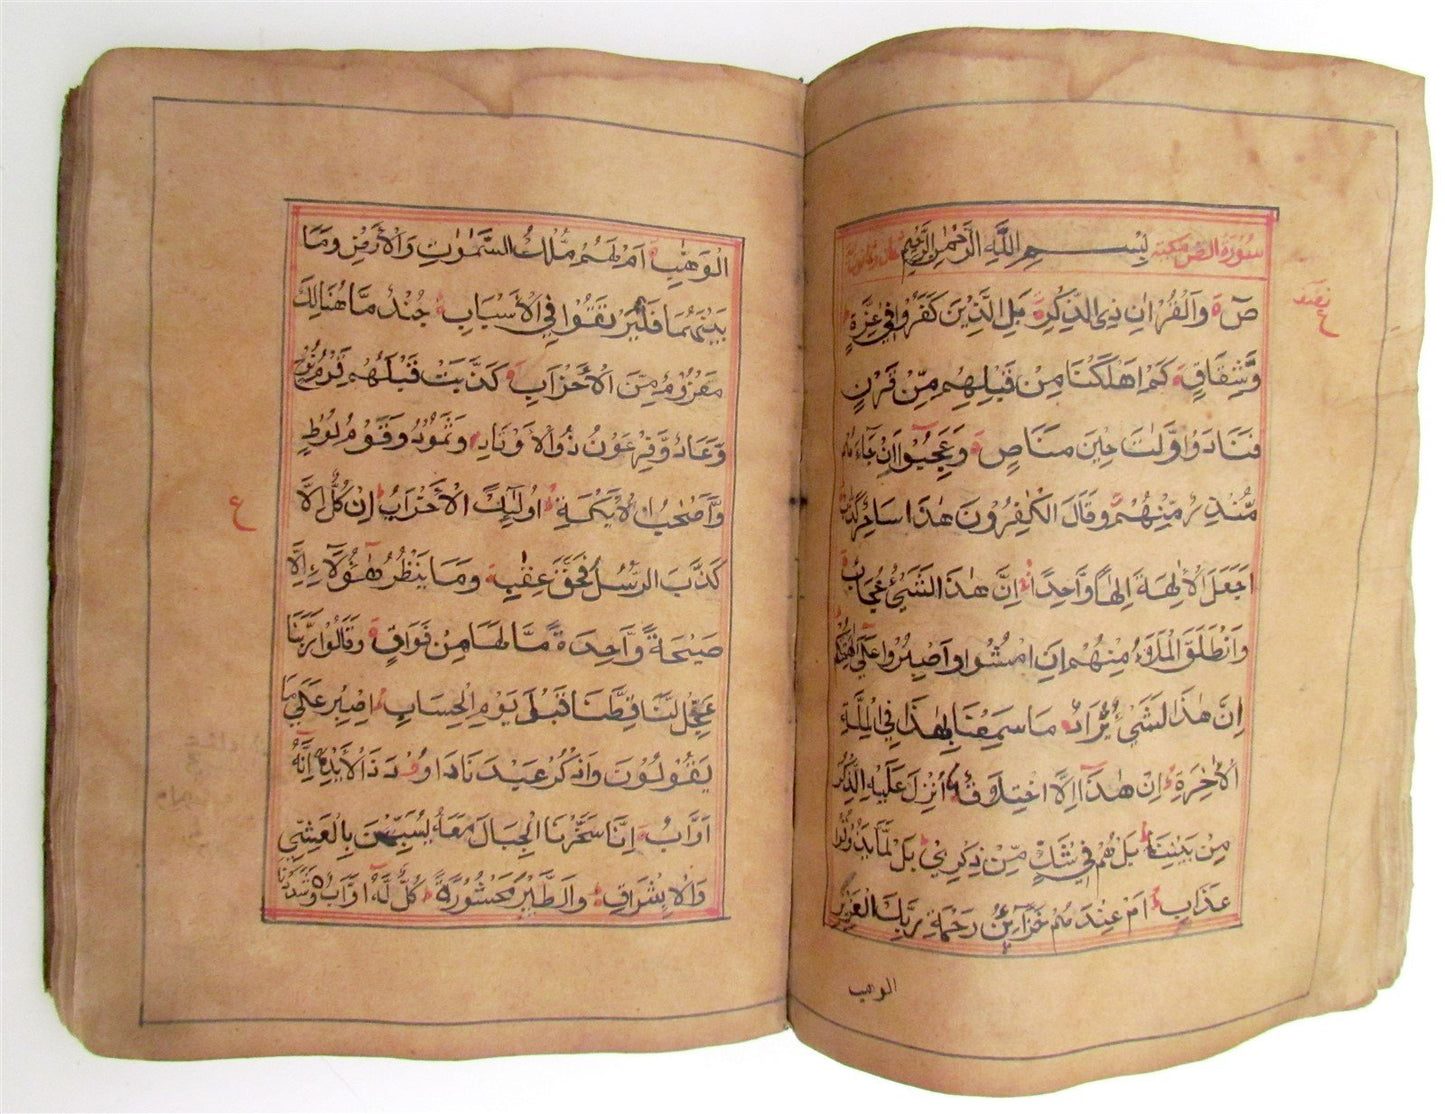 سورة ص مكية بسم الله الرحمن الرحيم
صٓ وَالْقُرْاٰنِ ذِي الذِّكْرِ بَلِ الَّذِيْنَ كَفَرُوْا فِيْ عِزَّةٍ
وَّشِقَاقٍ كَمْ اَهْلَكْنَا مِنْ قَبْلِهِمْ مِّنْ قَرْنٍ
فَنَادَوْا وَّلَاتَ حِيْنَ مَنَاصٍ وَعَجِبُوْا اَنْ جَاءَهُمْ
مُّنْذِرٌ مِّنْهُمْ وَقَالَ الْكٰفِرُوْنَ هٰذَا سَاحِرٌ كَذَّابٌ
اَجَعَلَ الْاٰلِهَةَ اِلٰهًا وَّاحِدًا اِنَّ هٰذَا لَشَيْءٌ عُجَابٌ
وَانْطَلَقَ الْمَلَاُ مِنْهُمْ اَنِ امْشُوْا وَاصْبِرُوْا عَلٰى اٰلِهَتِكُمْ
اِنَّ هٰذَا لَشَيْءٌ يُّرَادُ مَا سَمِعْنَا بِهٰذَا فِي الْمِلَّةِ
الْاٰخِرَةِ اِنْ هٰذَا اِلَّا اخْتِلَاقٌ ءَاُنْزِلَ عَلَيْهِ الذِّكْرُ
مِنْ بَيْنِنَا بَلْ هُمْ فِيْ شَكٍّ مِّنْ ذِكْرِيْ بَلْ لَّمَّا يَذُوْقُوْا
عَذَابِ اَمْ عِنْدَهُمْ خَزَآئِنُ رَحْمَةِ رَبِّكَ الْعَزِيْزِ
الوهاب
ع
الْوَهَّابِ اَمْ لَهُمْ مُّلْكُ السَّمٰوٰتِ وَالْاَرْضِ وَمَا
بَيْنَهُمَا فَلْيَرْتَقُوْا فِي الْاَسْبَابِ جُنْدٌ مَّا هُنَالِكَ
مَهْزُوْمٌ مِّنَ الْاَحْزَابِ كَذَّبَتْ قَبْلَهُمْ قَوْمُ نُوْحٍ
وَّعَادٌ وَّفِرْعَوْنُ ذُو الْاَوْتَادِ وَثَمُوْدُ وَقَوْمُ لُوْطٍ
وَّاَصْحٰبُ الْاَيْكَةِ اُولٰٓئِكَ الْاَحْزَابُ اِنْ كُلٌّ اِلَّا
كَذَّبَ الرُّسُلَ فَحَقَّ عِقَابِ وَمَا يَنْظُرُ هٰٓؤُلَآءِ اِلَّا
صَيْحَةً وَّاحِدَةً مَّا لَهَا مِنْ فَوَاقٍ وَقَالُوْا رَبَّنَا
عَجِّلْ لَّنَا قِطَّنَا قَبْلَ يَوْمِ الْحِسَابِ اِصْبِرْ عَلٰى مَا
يَقُوْلُوْنَ وَاذْكُرْ عَبْدَنَا دَاوٗدَ ذَا الْاَيْدِ اِنَّهٗ
اَوَّابٌ اِنَّا سَخَّرْنَا الْجِبَالَ مَعَهٗ يُسَبِّحْنَ بِالْعَشِيِّ
وَالْاِشْرَاقِ وَالطَّيْرَ مَحْشُوْرَةً كُلٌّ لَّهٗ اَوَّابٌ وَشَدَدْنَا
ع